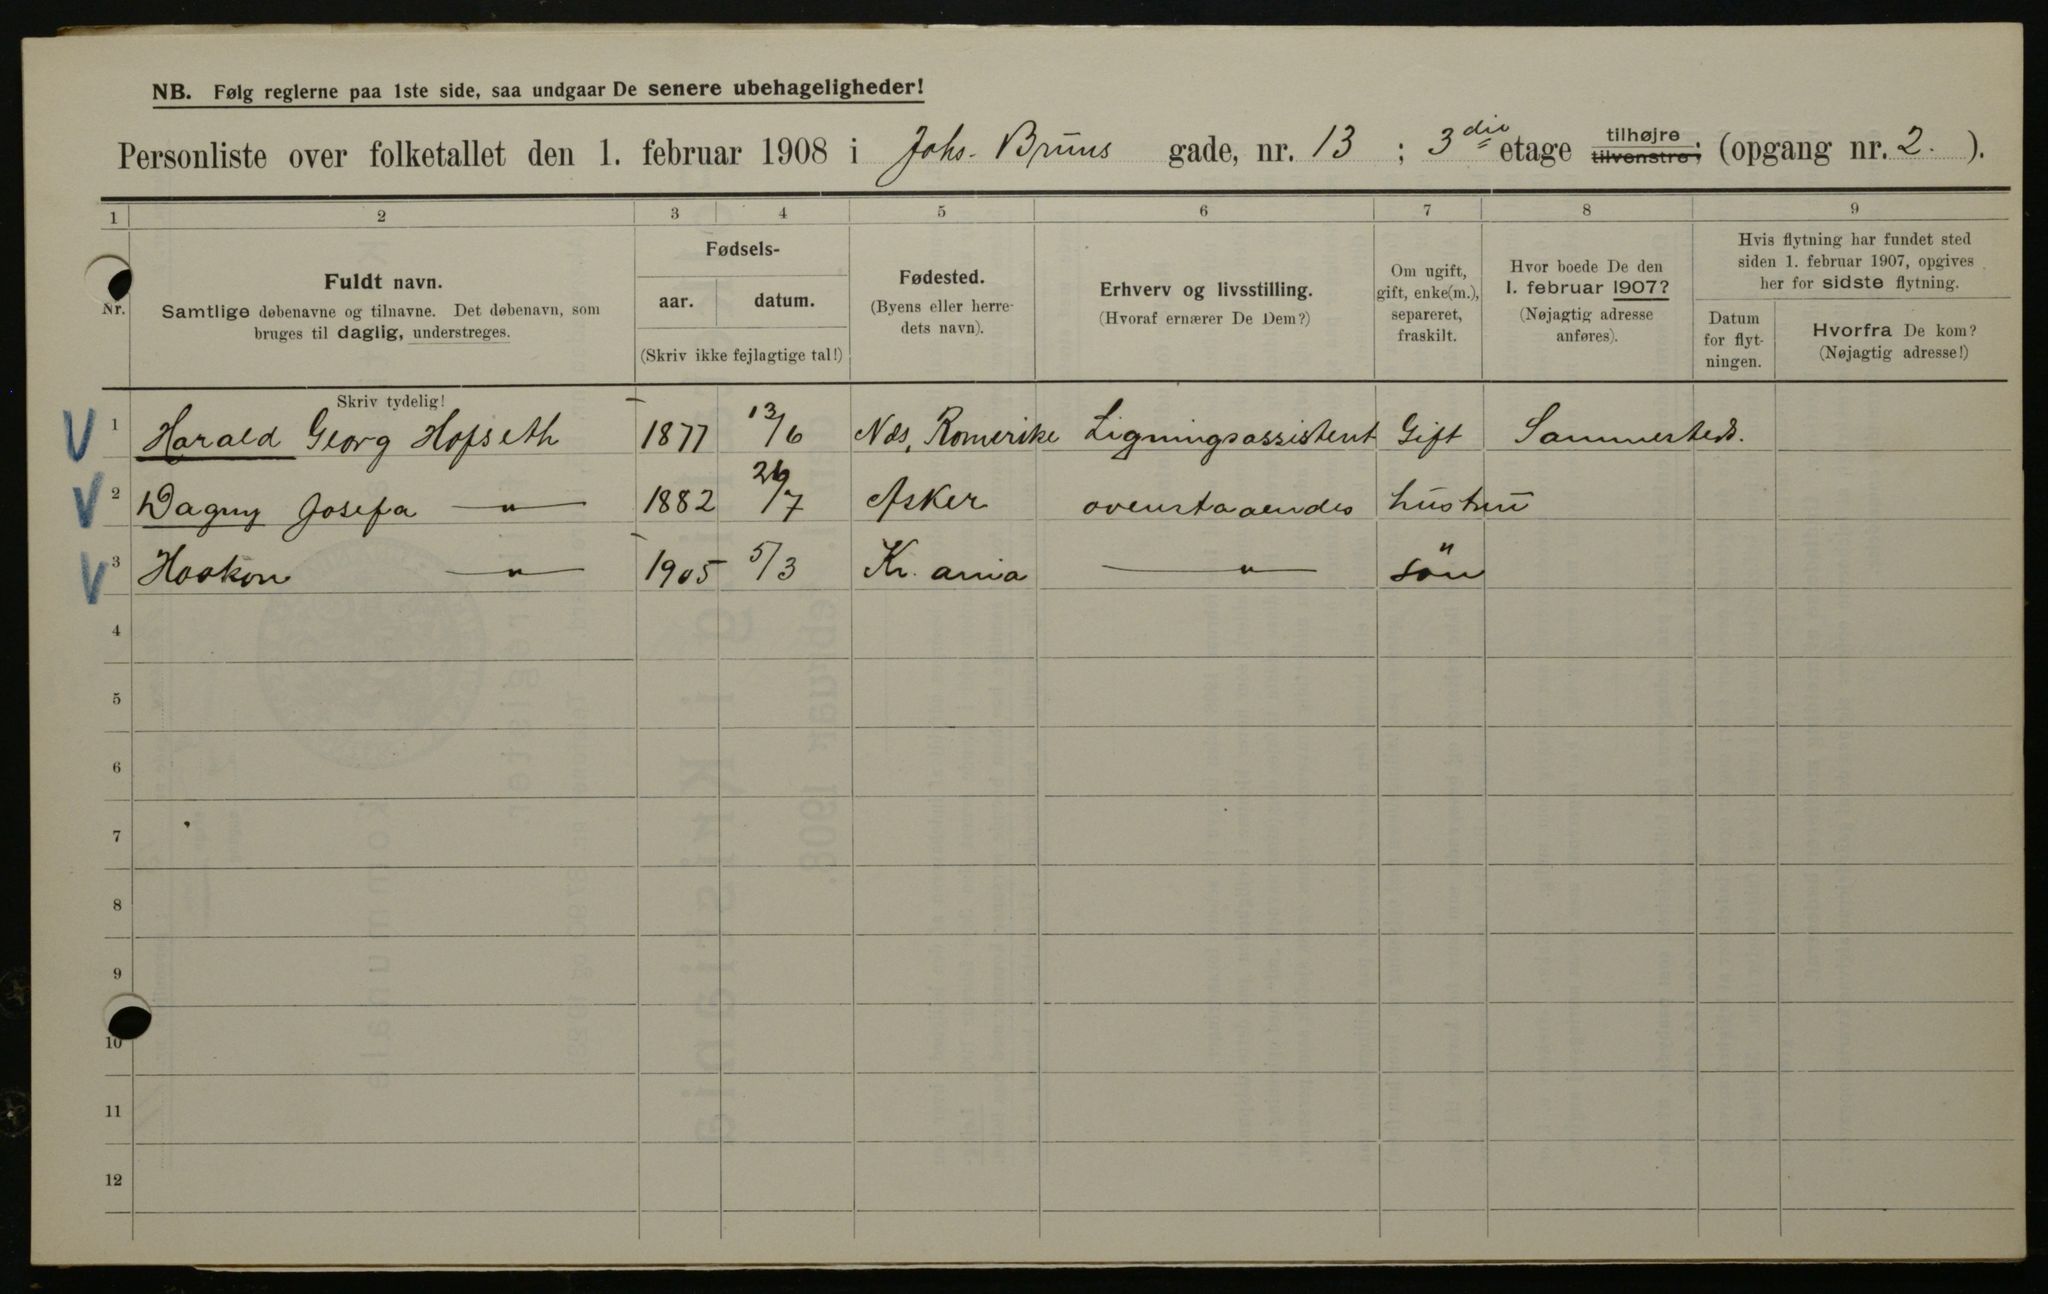 NB. Følg reglerne paa 1ste side, saa undgaar De senere ubehageligheder!
Personliste over folketallet den 1. februar 1908 i Johs. Bruns gade, nr. 13 ; 3die etage tilhøjre tilvenstre; (opgang nr. 2. ).
1 2 3 4 5 6 7 8 9
Nr.
Fuldt navn.
Samtlige døbenavne og tilnavne. Det døbenavn, som
bruges til daglig, understreges.
Fødsels-
aar. datum.
(Skriv ikke fejlagtige tal!)
Fødested.
(Byens eller herre-
dets navn).
Erhverv og livsstilling.
(Hvoraf ernærer De Dem?)
Om ugift,
gift, enke(m.),
separeret,
fraskilt.
Hvor boede De den
1. februar 1907?
(Nøjagtig adresse
anføres).
Hvis flytning har fundet sted
siden 1. februar 1907, opgives
her for sidste flytning.
Datum
for flyt-
ningen.
Hvorfra De kom?
(Nøjagtig adresse!)
Skriv tydelig!
V 1 Harald Georg Hofseth 1877 13/6 Næs, Romerike Ligningsassistent Gift Sammesteds.
V 2 Dagny Josefa —„— 1882 26/7 Asker ovenstaaendes hustru
V 3 Haakon —„— 1905 5/3 Kr. ania —„— „ søn
4
5
6
7
8
9
10
11
12